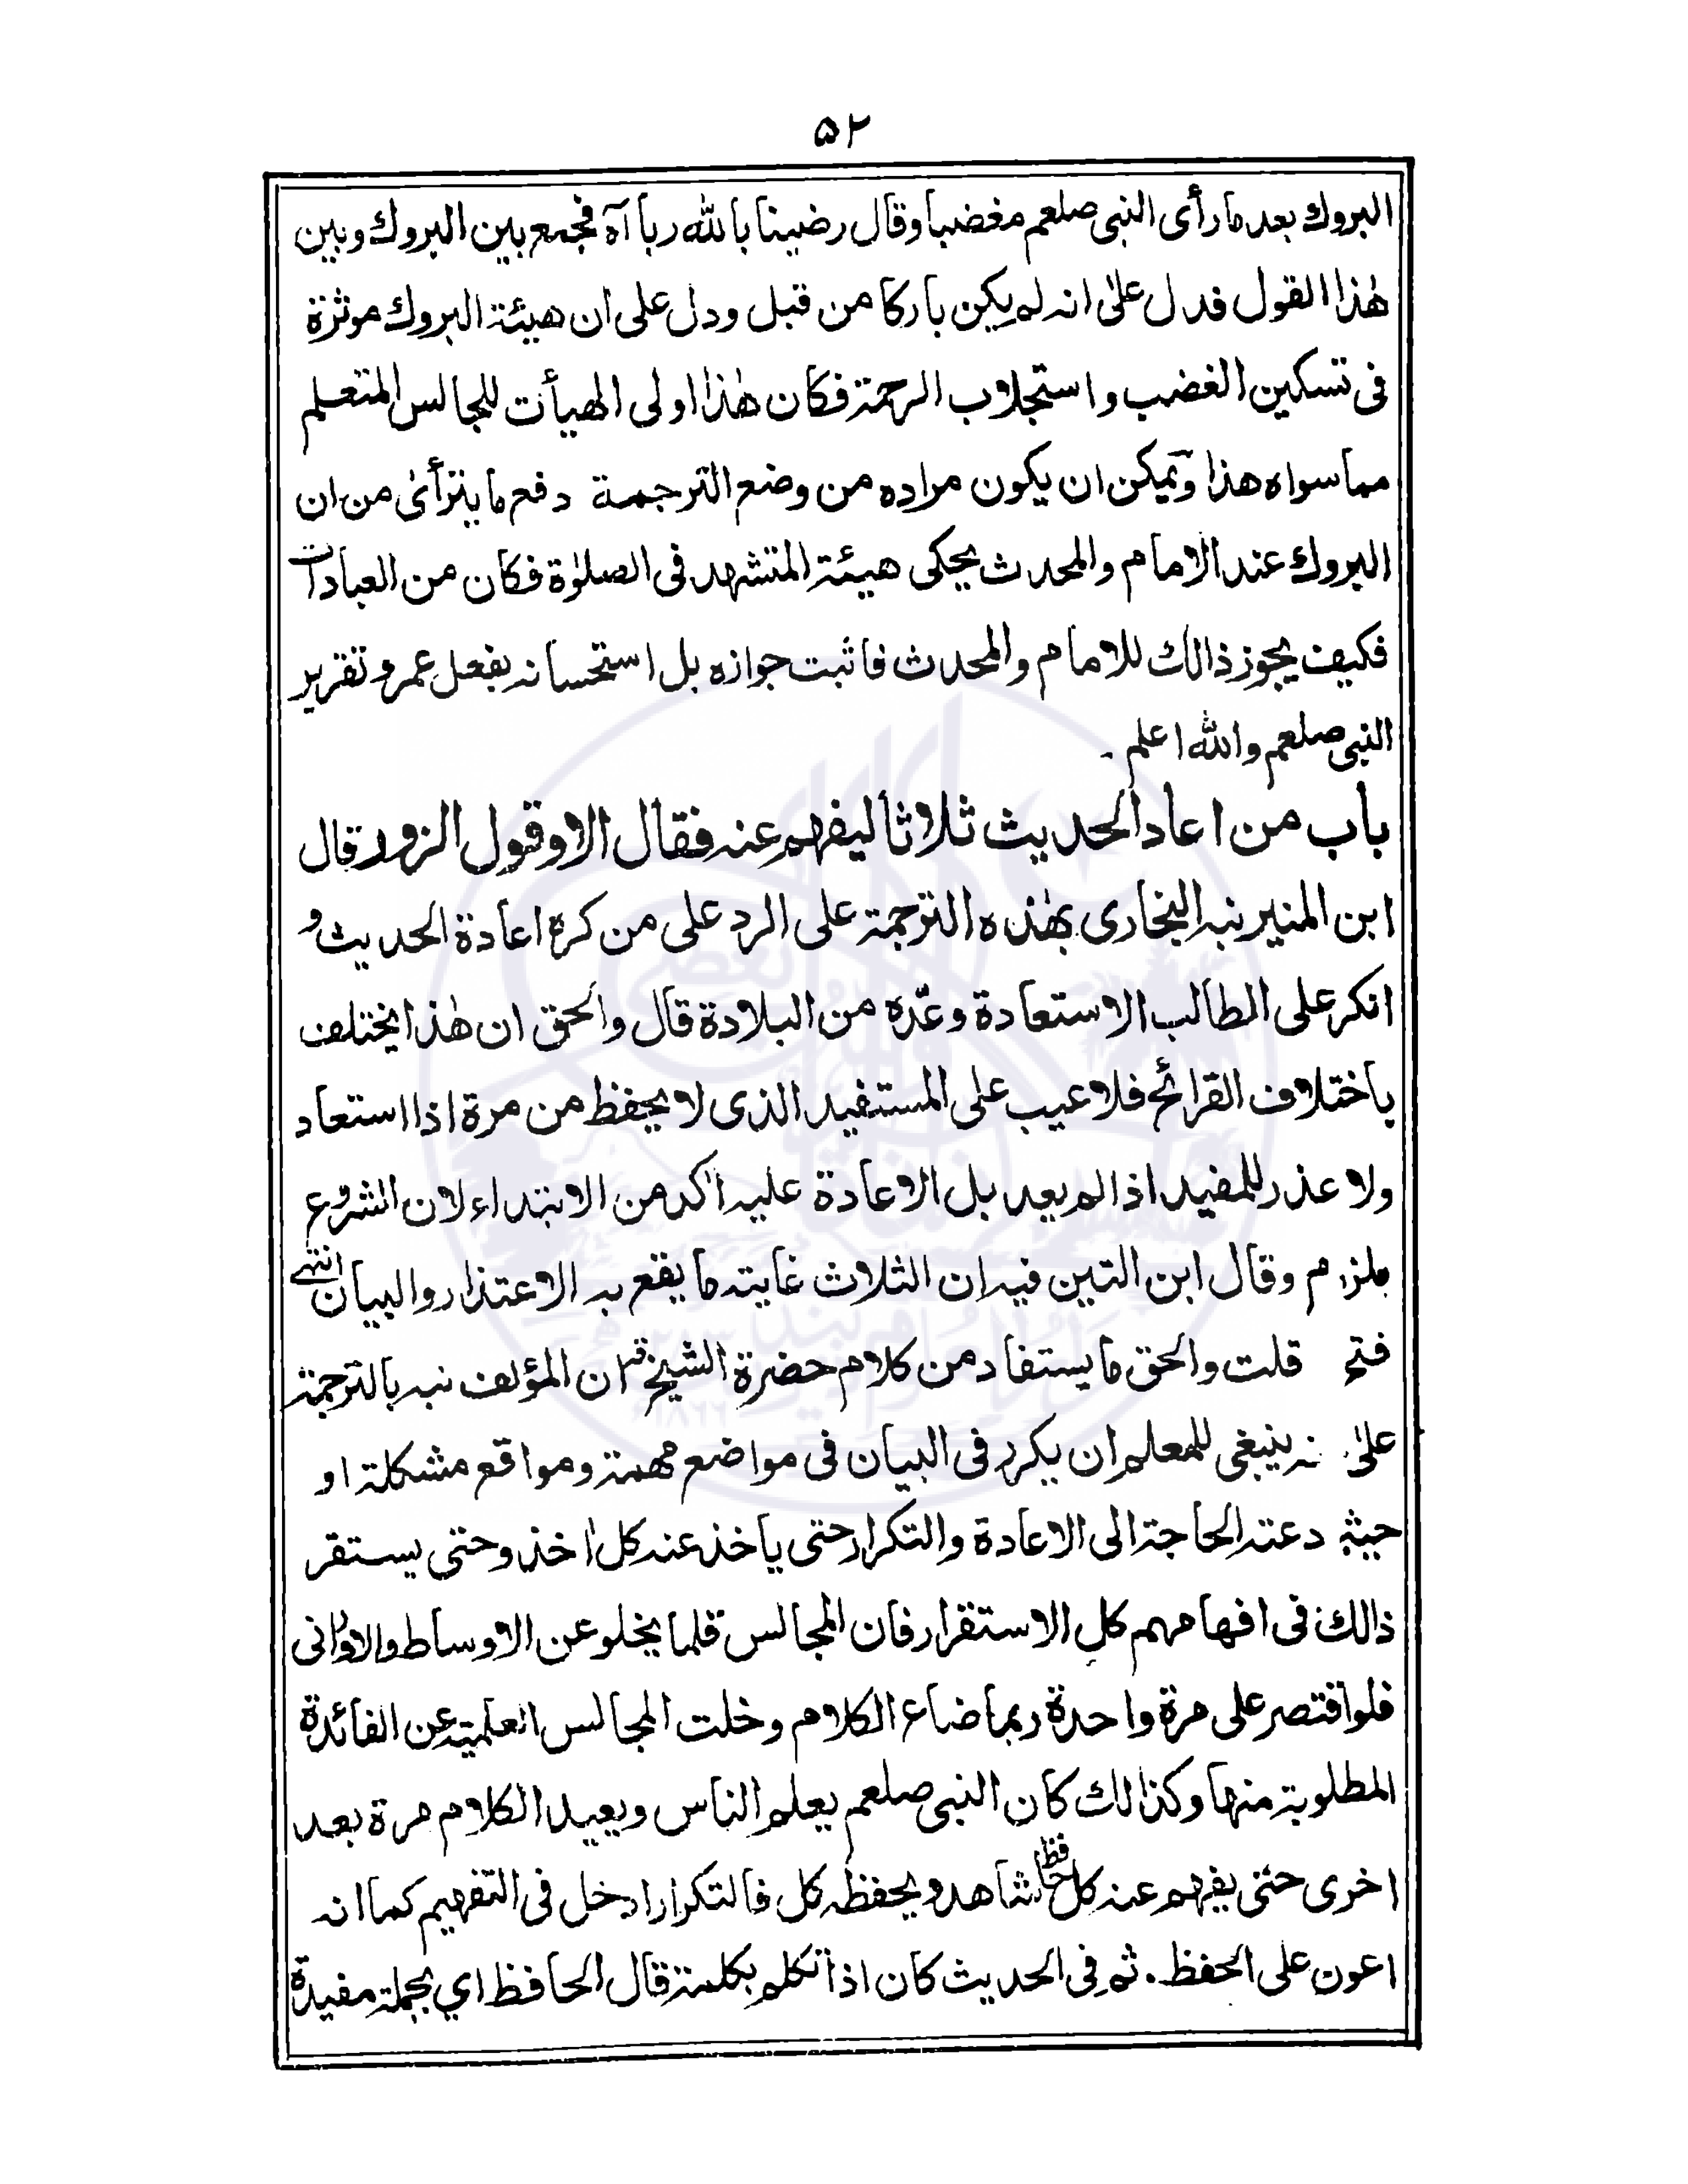 ۵۲
البروك بعد ما رأى النبى صلعم مغضبا وقال رضينا بالله ربا آه فجمع بين البروك وبين
هٰذا القول فدل علىٰ انه لم يكن باركا من قبل ودل على ان هيئة البروك موثرة
فى تسكين الغضب واستجلاب الرحمة فكان هٰذا اولى الهيأت للجالس المتعلم
مما سواه هذا ويمكن ان يكون مراده من وضع الترجمة دفع ما يترأىٰ من ان
البروك عند الامام والمحدث يحكى هيئة المتشهد فى الصلوٰة فكان من العبادات
فكيف يجوز ذالك للامام والمحدث فاثبت جوازه بل استحسانه بفعل عمر وتقرير
النبى صلعم والله اعلم ۔
باب من اعاد الحديث ثلاثا ليفهم عنه فقال الا وقول الزور قال
ابن المنير نبه البخارى بهٰذه الترجمة على الرد على من كره اعادة الحديث و
انكر على الطالب الاستعادة وعدّه من البلادة قال والحق ان هٰذا يختلف
باختلاف القرائح فلا عيب على المستفيد الذى لا يحفظ من مرة اذا استعاد
ولا عذر للمفيد اذا لم يعد بل الاعادة عليه اٰكد من الابتداء لان الشروع
ملزم وقال ابن التين فيه ان الثلاث غاية ما يقع به الاعتذار والبيان انتهى
فتح قلت والحق ما يستفاد من كلام حضرة الشيخ ان المؤلف نبه بالترجمة
علىٰ انه ينبغى للمعلم ان يكرر فى البيان فى مواضع مهمة ومواقع مشكلة او
حيث دعته الحاجة الى الاعادة والتكرار حتى ياخذ عنه كل اٰخذ وحتى يستقر
ذالك فى افهامهم كل الاستقرار فان المجالس قلما يخلو عن الاوساط والاوانى
فلو اقتصر على مرة واحدة ربما ضاع الكلام وخلت المجالس العلمية عن الفائدة
المطلوبة منها وكذالك كان النبى صلعم يعلم الناس ويعيد الكلام مرة بعد
اخرى حتى يفهم عنه كل حافظ شاهد ويحفظه كل فالتكرار ادخل فى التفهيم كما انه
اعون على الحفظ. ثم فى الحديث كان اذا تكلم بكلمة قال الحافظ اي بجملة مفيدة